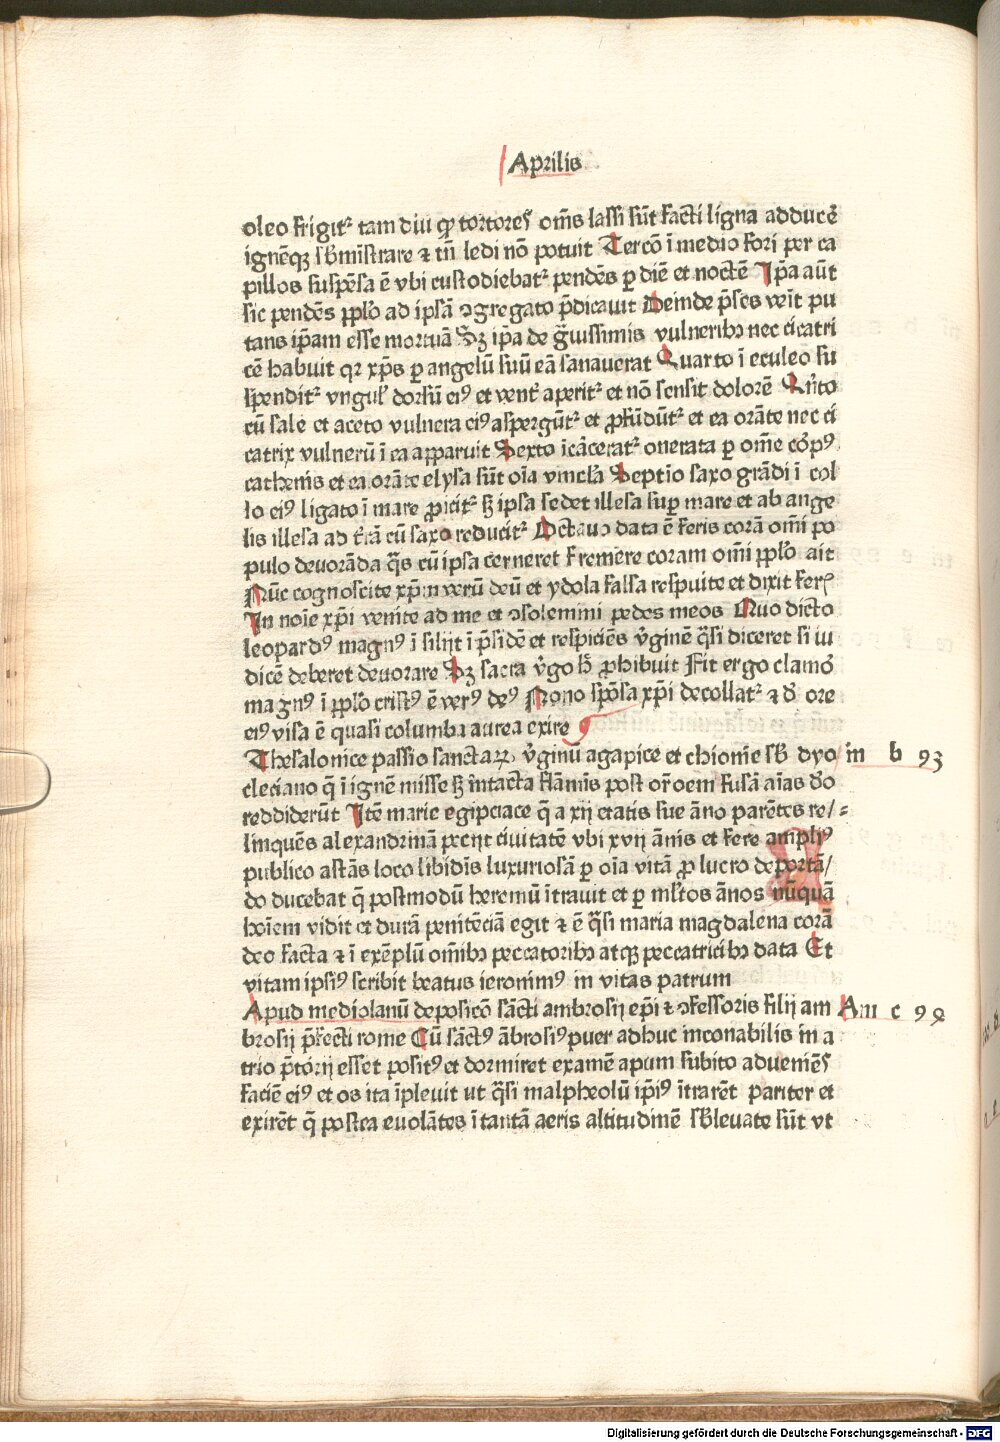 Aprilis
oleo frigit᷑ tam diu ꝙ tortores om̄s lassi sūt facti ligna adducē
ignēqꝫ sb̄ministrare ⁊ tn̄ ledi nō potuit Tercō ī medio fori per ca
pillos suspēsa ē vbi custodiebat᷑ pendēs ꝑ diē et noctē Ip̄a aūt
sic pendēs pp̄lo ad ipsā ↄgregato p̄dicauit Deinde p̄ses veīt pu
tans ip̄am esse mortuā Sꝫ ip̄a de gͣuissimis vulneribꝫ nec cicatri
cē habuit qꝛ xp̄s ꝑ angelū suū eā sanauerat Quarto ī eculeo su
spendit᷑ vngul̓ dorsū eiꝰ et vent̓ aperit᷑ et nō sensit dolorē Qn̄to
cū sale et aceto vulnera eiꝰ aspergūt᷑ et ꝓfūdūt᷑ et ea orāte nec ci
catrix vulnerū ī ea apparuit Sexto īcācerat᷑ onerata ꝑ om̄e cōpꝰ
cathenis et ea orāte elysa sūt oīa vincl̄a Septīo saxo grādi ī col
lo eiꝰ ligato ī mare ꝓicit᷑ sꝫ ipsa sedet illesa suꝑ mare et ab ange
lis illesa ad t̄rā cū saxo reducit᷑ Octauo data ē feris corā om̄i po
pulo deuorāda qͣs cū ipsa cerneret fremere coram om̄i pp̄lo ait
Nūc cognoscite xp̄m verū deū et ydola falsa respuite et dixit fer̄
In noīe xp̄i venite ad me et ↄsolemini pedes meos Quo dicto
leopardꝰ magnꝰ ī silijt ī p̄sidē et respiciēs v̓ginē qͣsi diceret si iu
dicē deberet deuorare Sꝫ sacra v̓go h̄ ꝓhibuit Fit ergo clamor
magnꝰ ī pp̄lo cristꝰ ē verꝰ deꝰ Nono spōsa xp̄i decollat᷑ ⁊ d̓ ore
eiꝰ visa ē quasi columba aurea exire
Thesalonice passio sanctaꝝ v̓ginū agapice et chionie sb̄ dyo in b 93
cleciano q̄ ī ignē misse sꝫ īntacta flāmis post or̄oem fusā aīas d̓o
reddiderūt Itē marie egipciace q̄ a xij etatis sue āno parētes re/
linquēs alexandrinā pecijt ciuitatē vbi xvij ānis et fere ampliꝰ
publico astās loco libidīs luxuriosā ꝑ oīa vitā ꝓ lucro deportā/
do ducebat q̄ postmodū heremū ītrauit et ꝑ ml̓tos ānos nūquā
hoīem vidit et durā penitēciā egit ⁊ ē qͣsi maria magdalena corā
deo facta ⁊ ī exēplū om̄ibꝫ peccatoribꝫ atqꝫ peccatricibꝫ data Et
vitam ipsiꝰ scribit beatus ieronimꝰ in vitas patrum
Apud mediolanū deposicō sācti ambrosij ep̄i ⁊ ↄfessoris filij am Am c 94
brosij p̄fecti rome Cū sāctꝰ ābrosiꝰ puer adhuc inconabilis in a
trio p̄torij esset positꝰ et dormiret examē apum subito adueniēs
faciē eiꝰ et os ita īpleuit ut qͣsi malpheolū ip̄iꝰ ītrarēt pariter et
exirēt q̄ postea euolātes ī tantā aeris altitudinē sb̄leuate sūt vt
Digitalisierung gefördert durch die Deutsche Forschungsgemeinschaft - DFG